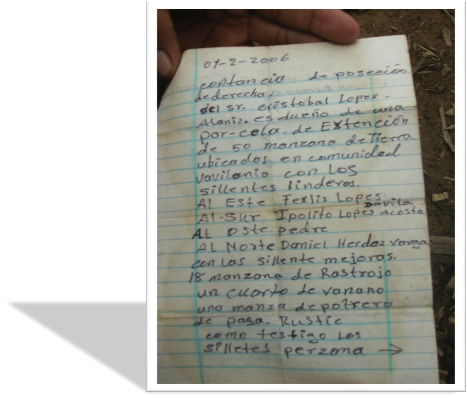 07-2-2006
contancia de poseción
de derecha.
del sr. cristobal Lopes.
Alaniz. es dueño de una
por-cela. de Extención
de 50 manzana de Tierra
ubicados en comunidad
vavilonia con los
sillentes linderos.
Al Este Fexlis Lopes Davila
Al-Sur Ipolito Lopes Acosta
AL Oste pedre
AL Norte Daniel Herdoz varga
con las sillente mejoras.
18 manzana de Rastrojo
un cuarto de vanano
una manza de potrero
de paga. Rustic
como testigo Los
silletes perzona →